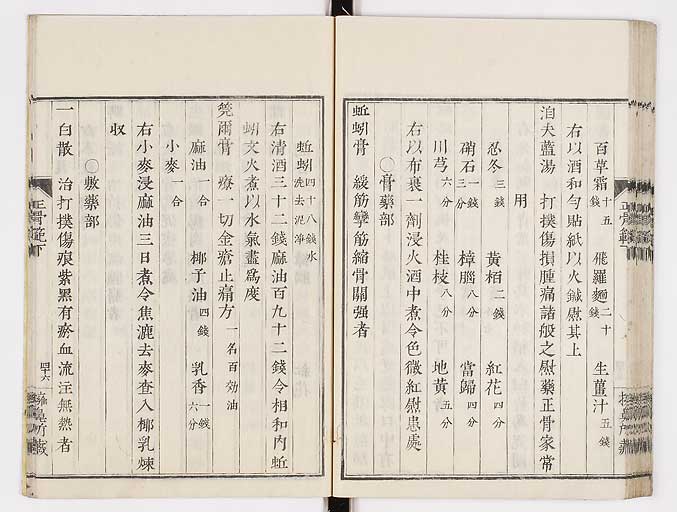 百草霜十五錢 飛羅麵二十錢 生薑汁五錢
右以酒和勻貼紙以火鍼熨其上
泊夫藍湯 打撲傷損腫痛諸般之熨藥正骨家常
用
忍冬三錢 黃栢二錢 紅花四分
硝石一錢三分 樟腦八分 當歸四分
川芎六分 桂枝八分 地黃五分
右以布裹一劑浸火酒中煮令色微紅熨患處
○膏藥部
蚯蚓膏 緩筋攣筋縮骨關强者
蚯蚓四十八錢水洗去泥淨
右清酒三十二錢麻油百九十二錢令相和內蚯
蚓文火煮以水氣盡爲度
莞爾膏 療一切金瘡止痛方一名百効油
麻油一合 椰子油四錢 乳香一錢六分
小麥一合
右小麥浸麻油三日煮令焦漉去麥查入椰乳煉
収
○敷藥部
一白散 治打撲傷痕紫黑有瘀血流注無熱者
正骨範下
四十六